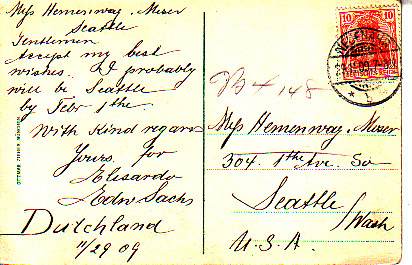 Mess Hemenway. Moser
Seattle
Gentlemen
Accept my best
wishes. I probably
will be Seattle
by Febr 1the
With Kind regards
Yours. for
Elisardo
Edw Sachs
Dutchland
11/29 09
OTTMAR ZIEHER, MÜNCHEN
10 10
B+ 148
Mess Hemenway. Moser
304. 1the Ave. So
Seattle
Wash
U.S.A.